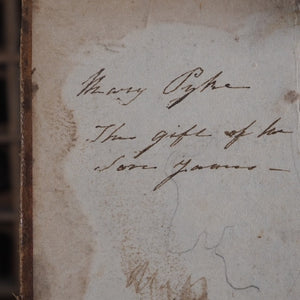 Mary Pyke
The gift of he
Son James —